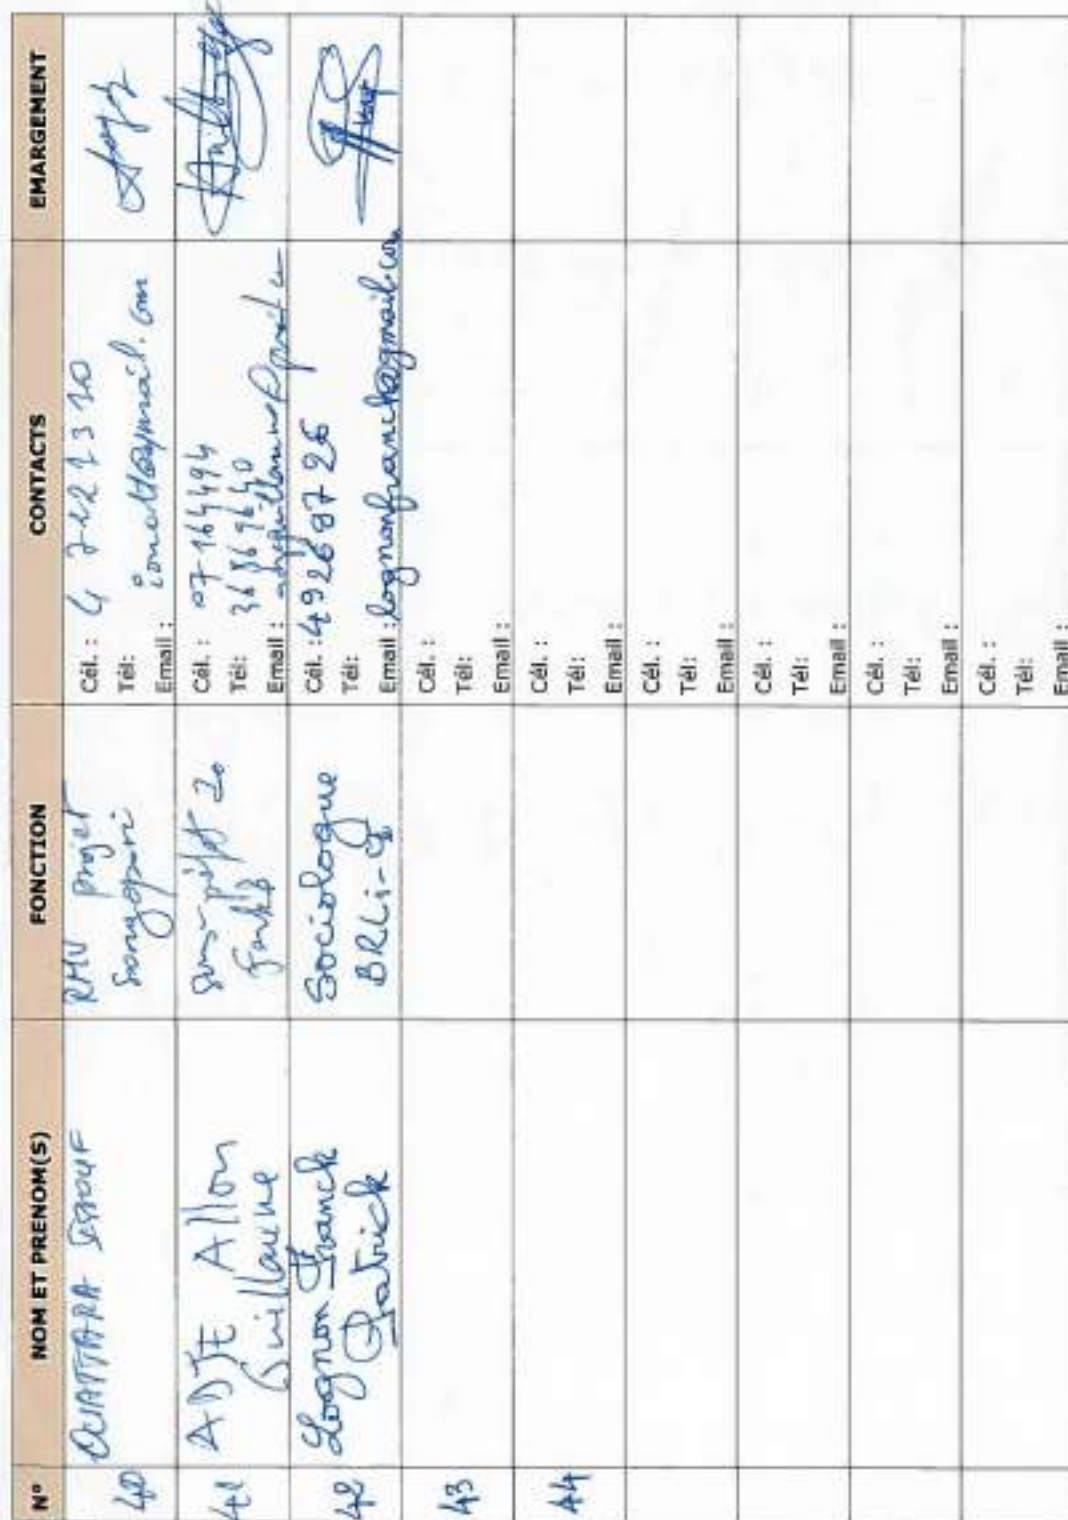 N° NOM ET PRENOM(S) FONCTION CONTACTS EMARGEMENT
40 OUATTARA ISSOUF
RMV projet
Songopari
Cél. :
Tél:
Email :
41 ADJE Allou
Guillaume
sous-préfet
Cél. : 07 16 44 94
Tél:
Email :
42 Lognon Franck
Patrick
Sociologue
BRLi-
Cél. : 49 26 97 26
Tél:
Email : lognonfranck@gmail.com
43
Cél. :
Tél:
Email :
44
Cél. :
Tél:
Email :
Cél. :
Tél:
Email :
Cél. :
Tél:
Email :
Cél. :
Tél:
Email :
Cél. :
Tél:
Email :